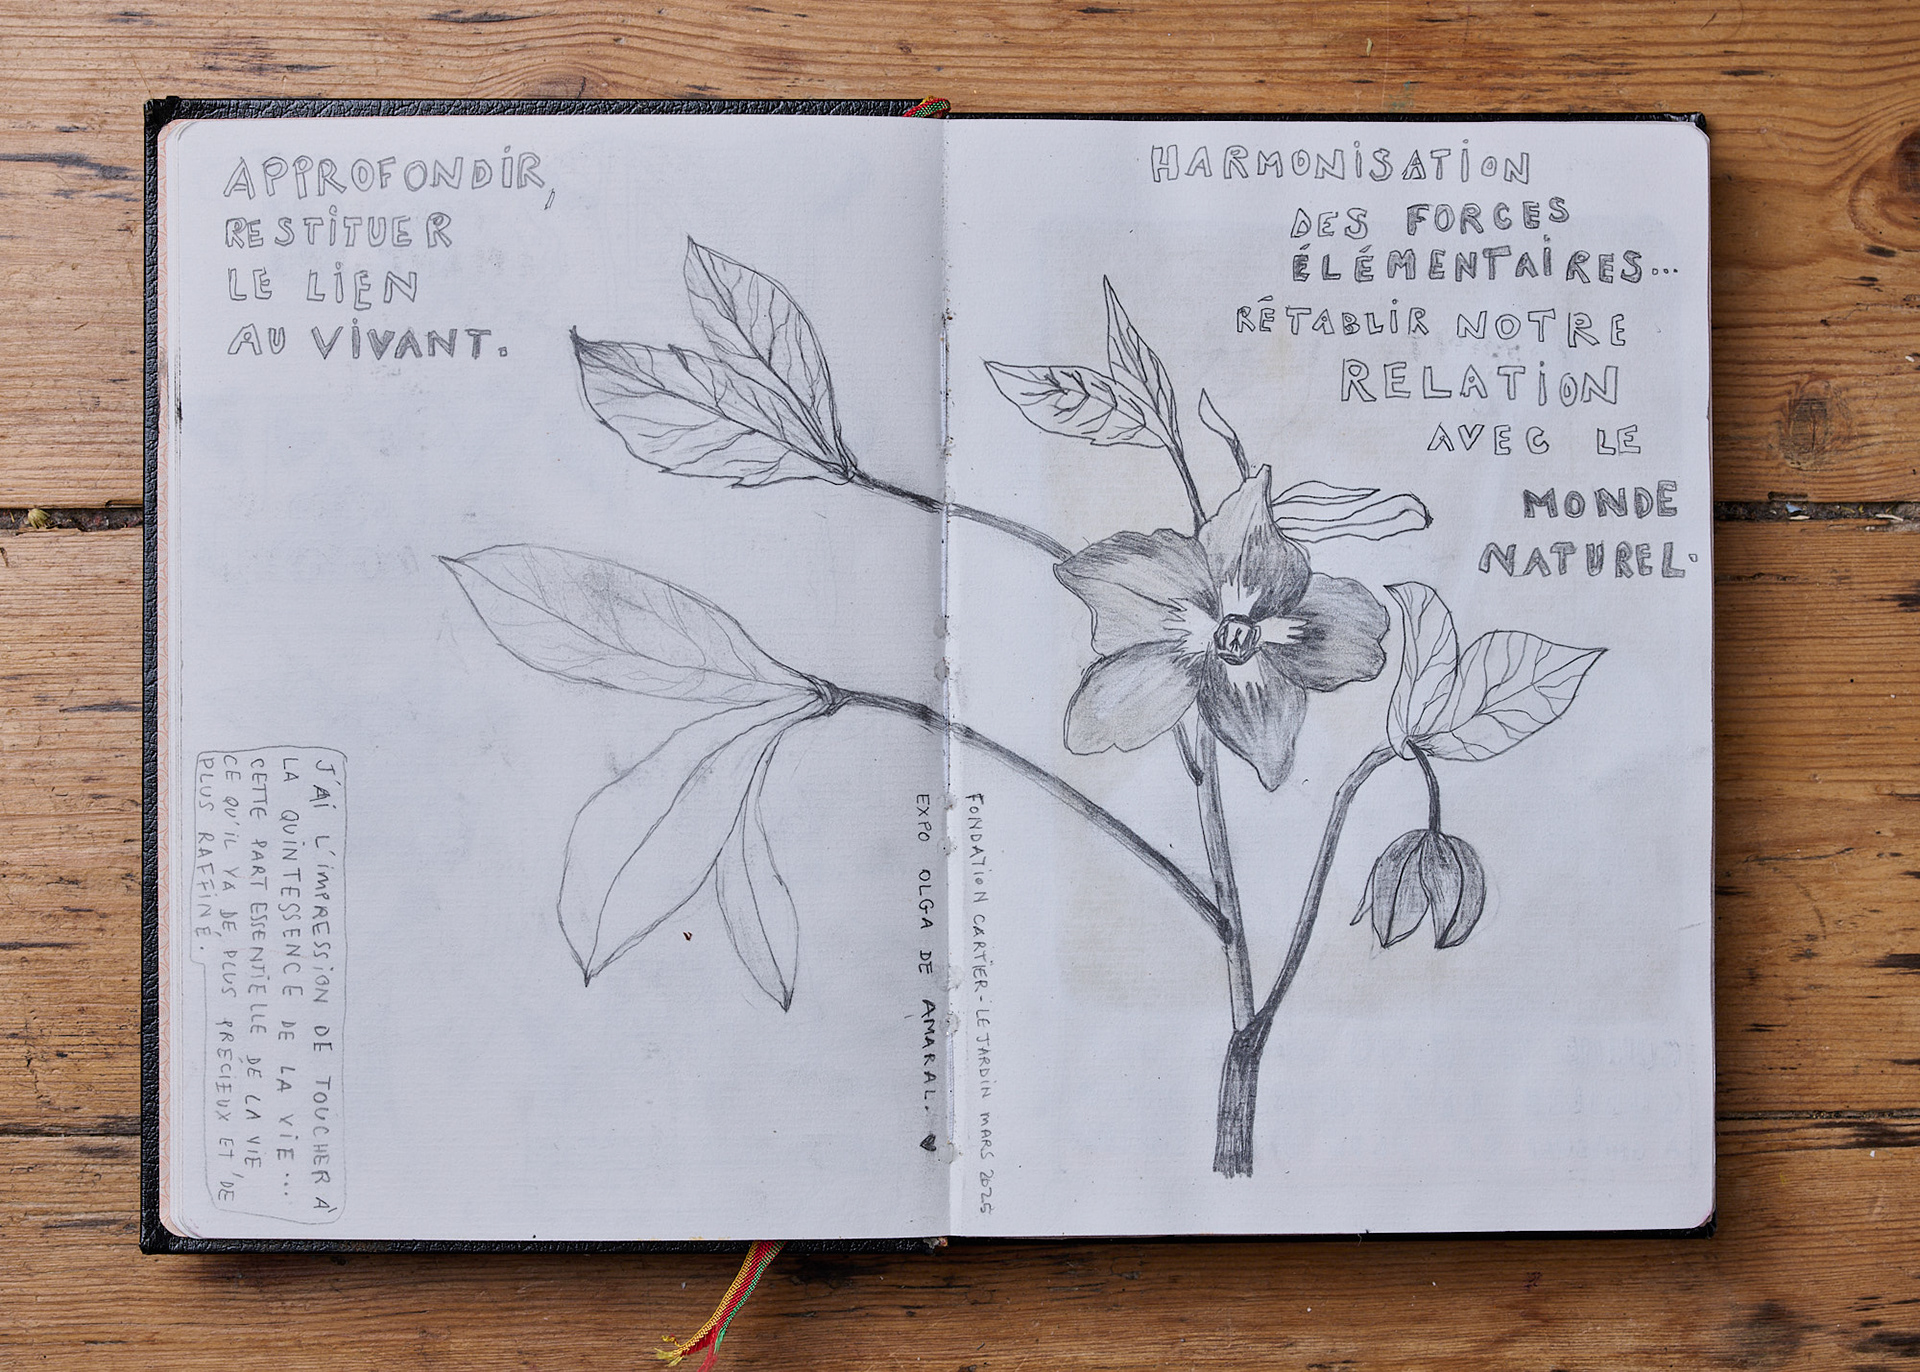 APPROFONDIR,
RESTITUER
LE LIEN
AU VIVANT.
J'AI L'IMPRESSION DE TOUCHER À
LA QUINTESSENCE DE LA VIE...
CETTE PART ESSENTIELLE DE LA VIE
CE QU'IL YA DE PLUS PRÉCIEUX ET DE
PLUS RAFFINÉ.
EXPO OLGA DE AMARAL. ♥
FONDATION CARTIER - LE JARDIN MARS 2025
HARMONISATION
DES FORCES
ÉLÉMENTAIRES...
RÉTABLIR NOTRE
RELATION
AVEC LE
MONDE
NATUREL.